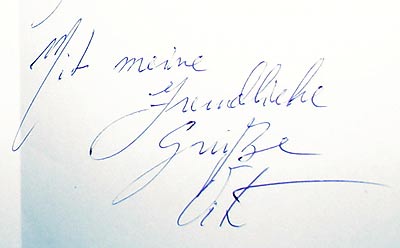 Mit meine
Freundliche
Grüße
Vit